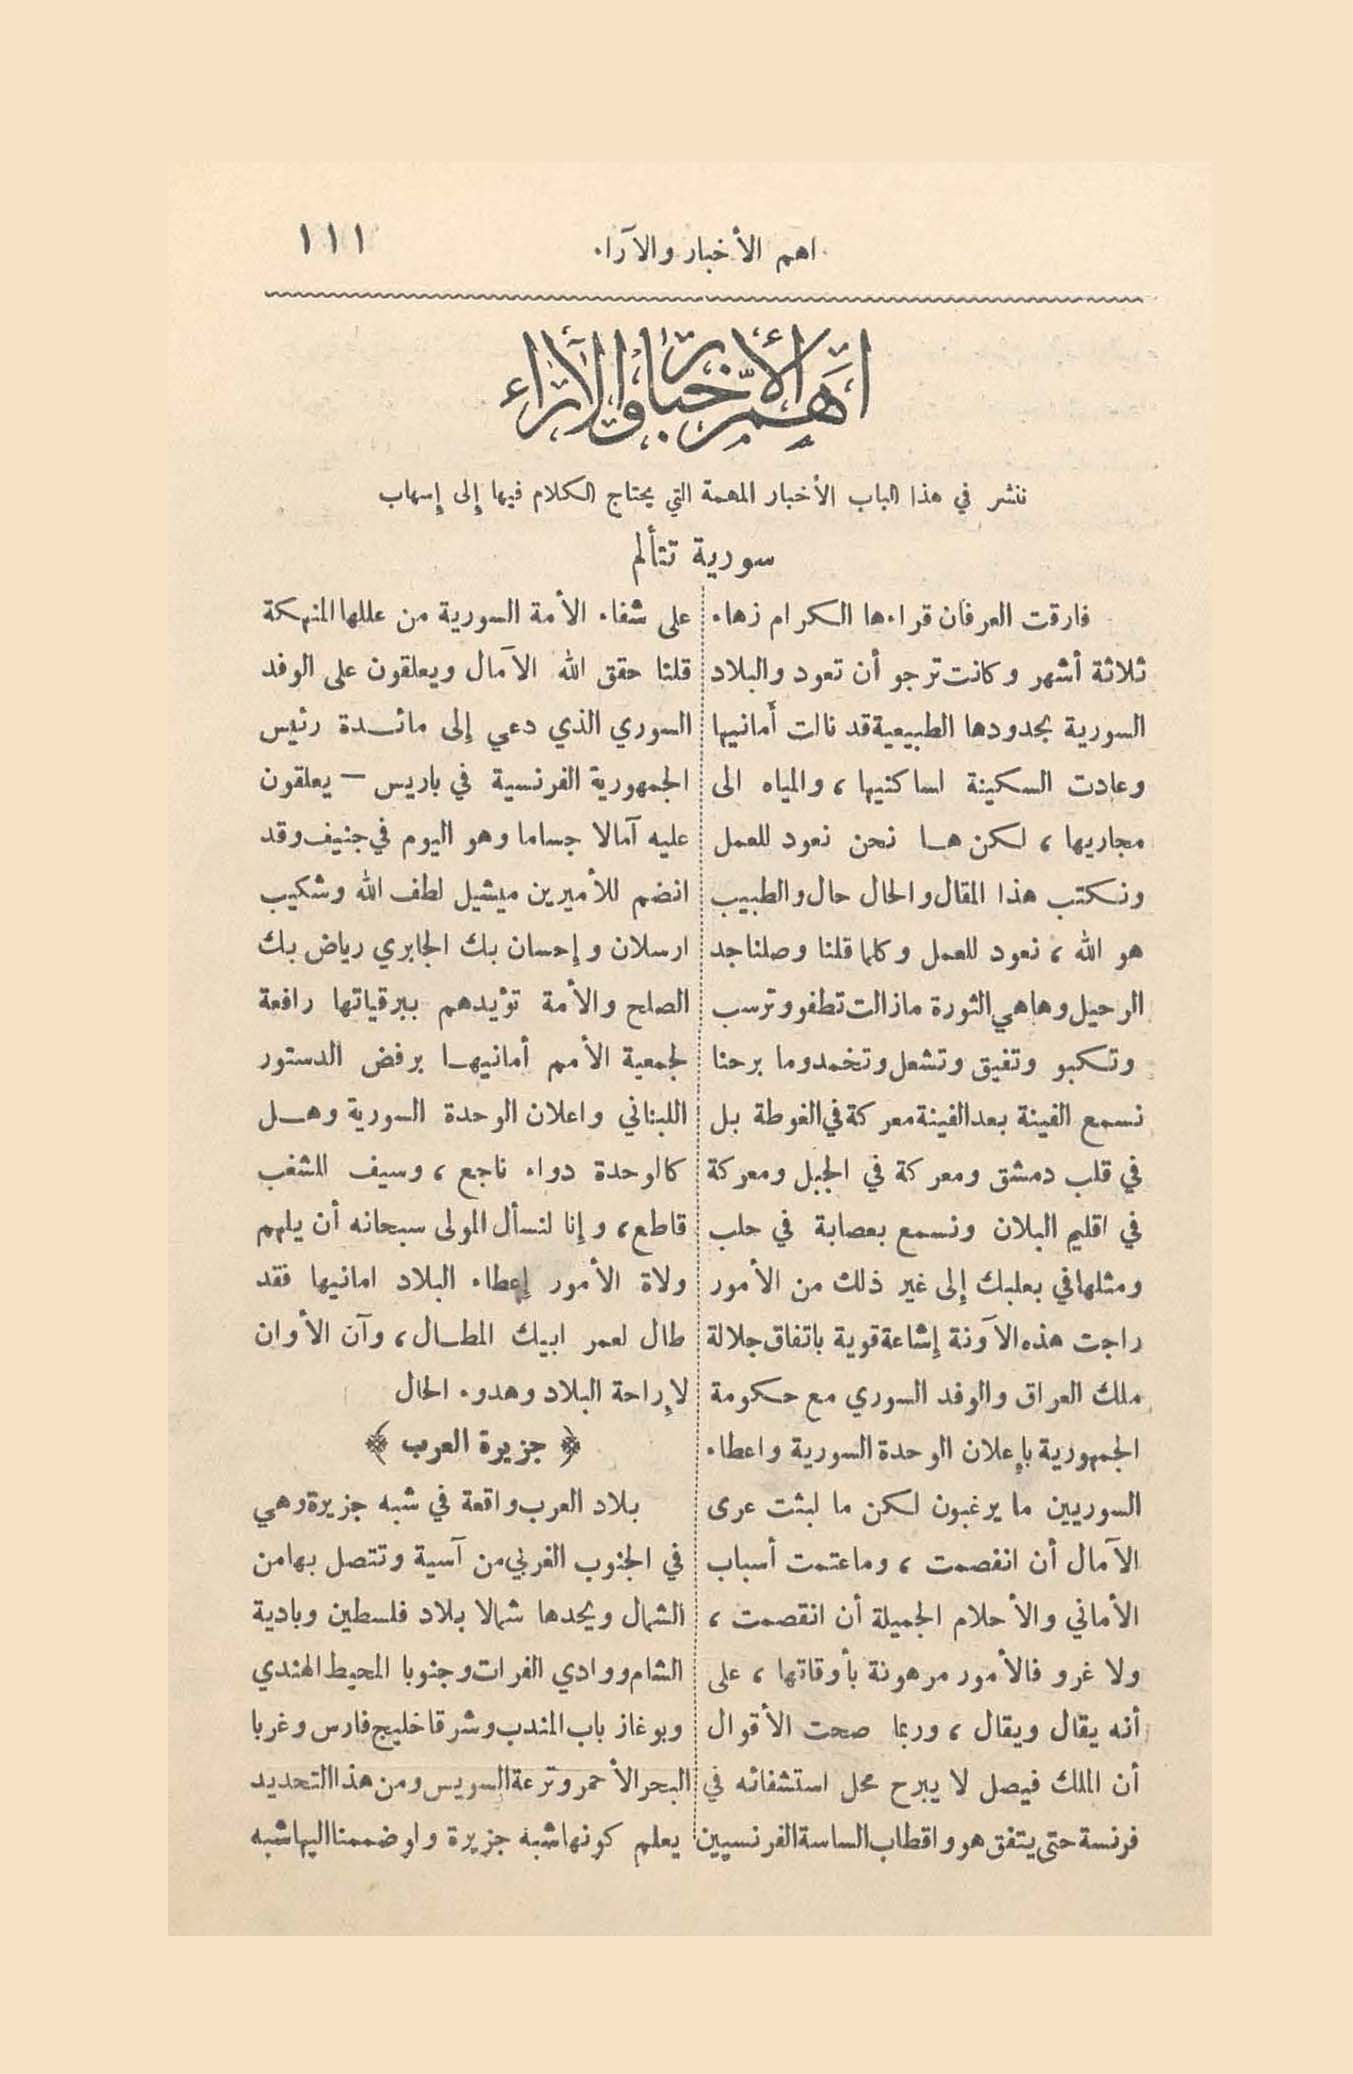 اهم الأخبار والآراء
١١١
أهم الأخبار والآراء
ننشر في هذا الباب الأخبار المهمة التي يحتاج الكلام فيها إلى إسهاب
سورية تتألم
فارقت العرفان قراءها الكرام زهاء
ثلاثة أشهر وكانت ترجو أن تعود والبلاد
السورية بحدودها الطبيعية قد نالت أمانيها
وعادت السكينة لساكنيها ، والمياه الى
مجاريها ، لكن ها نحن نعود للعمل
ونكتب هذا المقال والحال حال والطبيب
هو الله ، نعود للعمل وكلما قلنا وصلنا جد
الرحيل وها هي الثورة ما زالت تطفو وترسب
وتكبو وتفيق وتشعل وتخمد وما برحنا
نسمع الفينة بعد الفينة معركة في الغوطة بل
في قلب دمشق ومعركة في الجبل ومعركة
في اقليم البلان ونسمع بعصابة في حلب
ومثلها في بعلبك إلى غير ذلك من الأمور
راجت هذه الآونة إشاعة قوية باتفاق جلالة
ملك العراق والوفد السوري مع حكومة
الجمهورية بإعلان الوحدة السورية واعطاء
السوريين ما يرغبون لكن ما لبثت عرى
الآمال أن انفصمت ، وما عتمت أسباب
الأماني والأحلام الجميلة أن انقصمت ،
ولا غرو فالأمور مرهونة بأوقاتها ، على
أنه يقال ويقال ، وربما صحت الأقوال
أن الملك فيصل لا يبرح محل استشفائه في
فرنسة حتى يتفق هو واقطاب الساسة الفرنسيين
على شفاء الأمة السورية من عللها المنهكة
قلنا حقق الله الآمال ويعلقون على الوفد
السوري الذي دعي إلى مائدة رئيس
الجمهورية الفرنسية في باريس — يعلقون
عليه آمالا جساما وهو اليوم في جنيف وقد
انضم للأميرين ميشيل لطف الله وشكيب
ارسلان وإحسان بك الجابري رياض بك
الصلح والأمة تؤيدهم ببرقياتها رافعة
لجمعية الأمم أمانيها برفض الدستور
اللبناني واعلان الوحدة السورية وهل
كالوحدة دواء ناجع ، وسيف للشغب
قاطع ، وإنا لنسأل المولى سبحانه أن يلهم
ولاة الأمور إعطاء البلاد امانيها فقد
طال لعمر ابيك المطال ، وآن الأوان
لإراحة البلاد وهدوء الحال
﴿ جزيرة العرب ﴾
بلاد العرب واقعة في شبه جزيرة وهي
في الجنوب الغربي من آسية وتتصل بها من
الشمال ويحدها شمالا بلاد فلسطين وبادية
الشام ووادي الفرات وجنوبا المحيط الهندي
وبوغاز باب المندب وشرقا خليج فارس وغربا
البحر الأحمر وترعة السويس ومن هذا التحديد
يعلم كونها شبه جزيرة ولو ضممنا اليها شبه